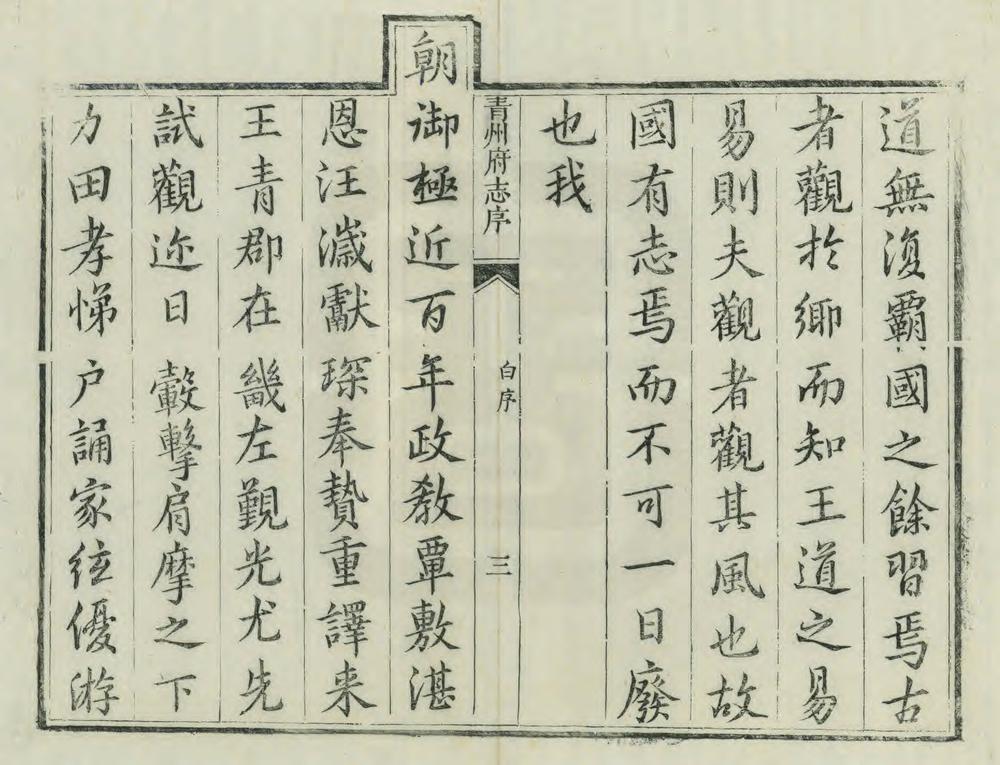 道無復霸國之餘習焉古
者觀扵鄉而知王道之易
易則夫觀者觀其風也故
國有志焉而不可一日廢
也我
青州府志序
白序
三
朝御極近百年政教覃敷湛
恩汪濊獻琛奉贄重譯来
王青郡在畿左覲光尤先
試觀迩日轂擊肩摩之下
力田孝悌户誦家絃優游